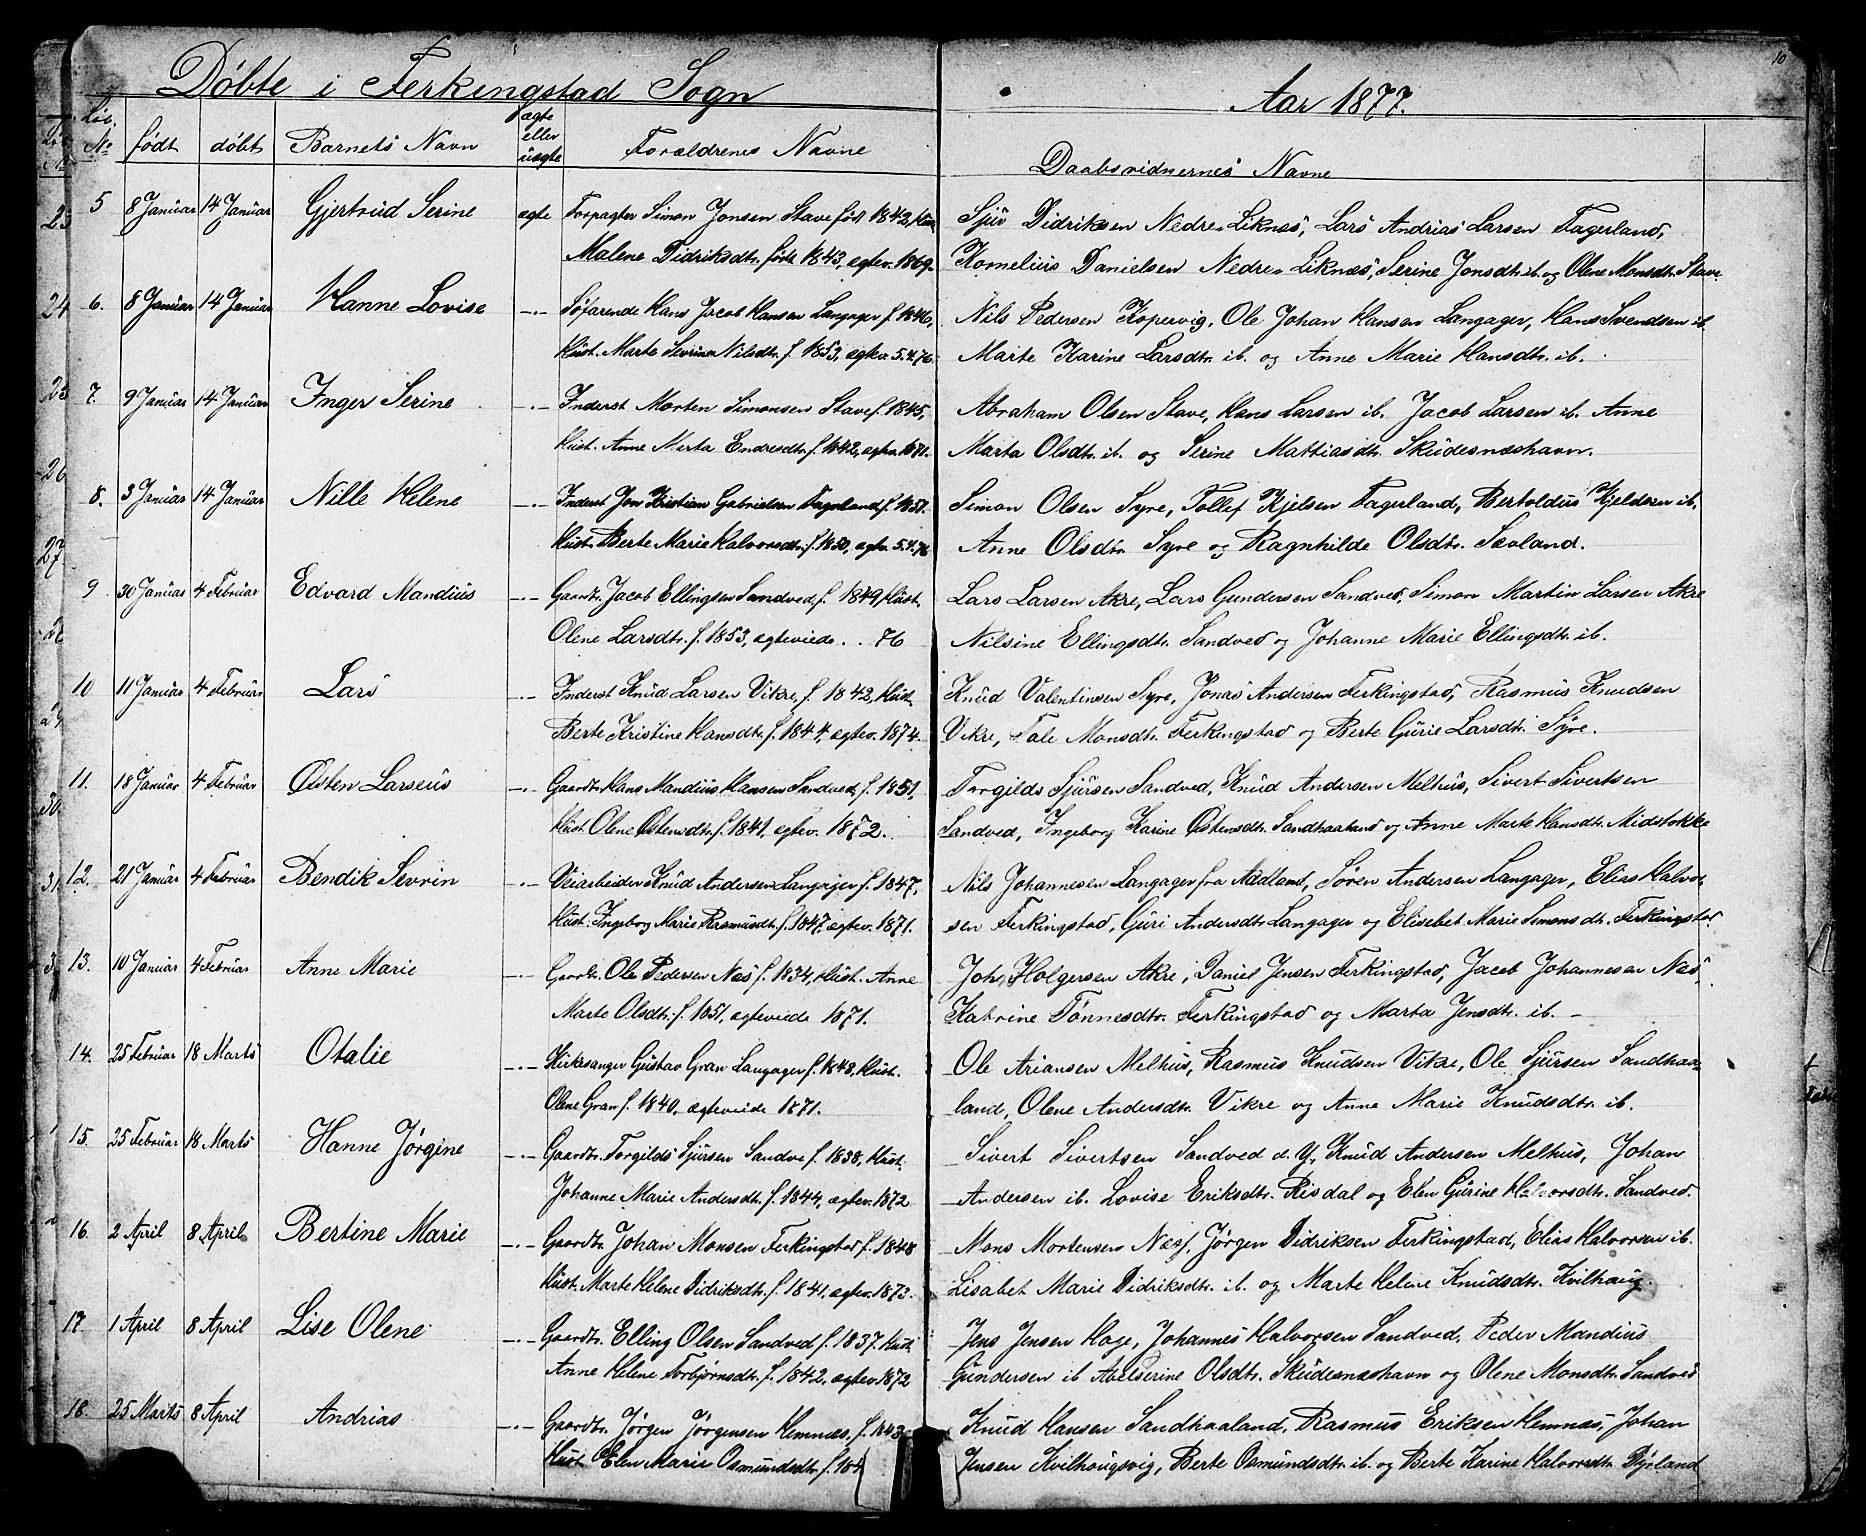 10
Døbte i Ferkingstad Sogn
Aar 1877.
Lib. No født døbt Barnets Navn ægte eller uægte Forældrenes Navne Daabsvidnernes Navne
5 8 Januar 14 Januar Gjertrud Serine ægte Forpagter Simon Jonsen Stave født 1843, Hust. Sjur Didriksen Nedre Liknes, Lars Andrias Larsen Fagerland,
Malene Didriksdtr. født 1843, ægtev. 1869. Kornelius Danielsen Nedre Liknæs, Serine Jonsdtr. ib. og Olene Monsdtr. Stave
6. 8 Januar 14 Januar Hanne Lovise -"- Søfarende Hans Jacob Hansen Langager f. 1846, Nils Pedersen Kopervig, Ole Johan Hansen Langager, Hans Svendsen ib.
Hust. Marte Sevrine Nilsdtr. f. 1853, ægtev. 5.4.76. Marte Karine Larsdtr. ib. og Anne Marie Hansdtr. ib.
7. 9 Januar 14 Januar Inger Serine -"- Inderst Morten Simonsen Stave f. 1845, Abraham Olsen Stave, Hans Larsen ib. Jacob Larsen ib. Anne
Hust. Anne Marta Endresdtr. f. 1842, ægtev. 1871. Marta Olsdtr. ib. og Serine Mattiasdtr. Skudesnæshavn.
8. 3 Januar 14 Januar Nille Helene -"- Inderst Jon Kristian Gabrielsen Fagerland f. 1851. Simon Olsen Syre, Tollef Kjelsen Fagerland, Bertoldus Kjeldsen ib.
Hust. Berte Marie Halvorsdtr. f. 1850, ægtev. 5.4.76 Anne Olsdtr. Syre og Ragnhilde Olsdtr. Sævland.
9 30 Januar 4 Februar Edvard Mandius -"- Gaardbr. Jacob Ellingsen Sandved f. 1849, Hust. Lars Larsen Akre, Lars Gundersen Sandved, Simon Martin Larsen Akre
Olene Larsdtr. f. 1853, ægteviede . . 76 Nilsine Ellingsdtr. Sandved og Johanne Marie Ellingsdtr. ib.
10 11 Januar 4 Februar Lars -"- Inderst Knud Larsen Vikre, f. 1842, Hust. Knud Valentinsen Syre, Jonas Andersen Ferkingstad, Rasmus Knudsen
Berte Kristine Hansdtr. f. 1844, ægtev. 1874. Vikre, Tale Monsdtr. Ferkingstad og Berte Gurie Larsdtr. Syre.
11. 18 Januar 4 Februar Østen Larseus -"- Gaardbr. Hans Mandius Hansen Sandved f. 1851, Torgilds Sjursen Sandved, Knud Andersen Melhus, Sivert Sivertsen
Hust. Olene Østensdtr. f. 1841, ægtev. 1872. Sandved, Ingeborg Karine Østensdtr. Sandhaaland og Anne Marte Hansdtr. Midstokke
12. 21 Januar 4 Februar Bendik Sevrin -"- Veiarbeider Knud Andersen Langager f. 1847, Nils Johannesen Langager fra Nædland, Søren Andersen Langager, Elias Halvor-
Hust. Ingeborg Marie Rasmusdtr. f. 1847, ægtev. 1871. sen Ferkingstad, Guri Andersdtr. Langager og Elisebet Marie Simonsdtr. Ferkingstad.
13. 10 Januar 4 Februar Anne Marie -"- Gaardbr. Ole Pedersen Næs f. 1834, Hust. Anne Joh. Holgersen Akre, Daniel Jensen Ferkingstad, Jacob Johannesen Næs,
Marte Olsdtr. f. 1851, ægteviede 1871. Katrine Tønnesdtr. Ferkingstad og Marta Jensdtr. ib. -
14. 25 Februar 18 Marts Otalie -"- Kirkesanger Gustav Gran Langager f. 1848, Hust. Ole Ariansen Melhus, Rasmus Knudsen Vikre, Ole Sjursen Sandhaa-
Olene Gran f. 1840, ægteviede 1871. land, Olene Andersdtr. Vikre og Anne Marie Knudsdtr. ib.
15. 25 Februar 18 Marts Hanne Jørgine -"- Gaardbr. Torgilds Sjursen Sandve f. 1838, Hust. Sivert Sivertsen Sandved d. Y, Knud Andersen Melhus, Johan
Johanne Marie Andersdtr. f. 1844, ægtev. 1872 Andersen ib. Lovise Eriksdtr. Risdal og Elen Gurine Halvorsdtr. Sandved.
16. 2 April 8 April Bertine Marie -"- Gaardbr. Johan Monsen Ferkingstad f. 1848 Mons Mortensen Næs, Jørgen Didriksen Ferkingstad, Elias Halvorsen ib.
Hust. Marte Helene Didriksdtr. f. 1841, ægtev. 1873. Lisabet Marie Didriksdtr. ib. og Marte Helene Knudsdtr. Kvilhaug.
17 1 April 8 April Lise Olene -"- Gaardbr. Elling Olsen Sandved f. 1837. Hust. Jens Jensen Hoge, Johannes Halvorsen Sandved, Peder Mandius
Anne Helene Torbjørnsdtr. f. 1842, ægtev. 1872 Gundersen ib. Abelserine Olsdtr. Skudesnæshavn og Olene Monsdtr. Sandved
18. 25 Marts 8 April Andrias -"- Gaardbr. Jørgen Jørgensen Hemnæs, f. 1843 Knud Hansen Sandhaaland, Rasmus Eriksen Hemnæs, Johan
Hust. Elen Marie Osmundsdtr. f. 184 Jensen Kvilhougsvig, Berte Osmundsdtr. ib. og Berte Karine Halvorsdtr. Dyrland